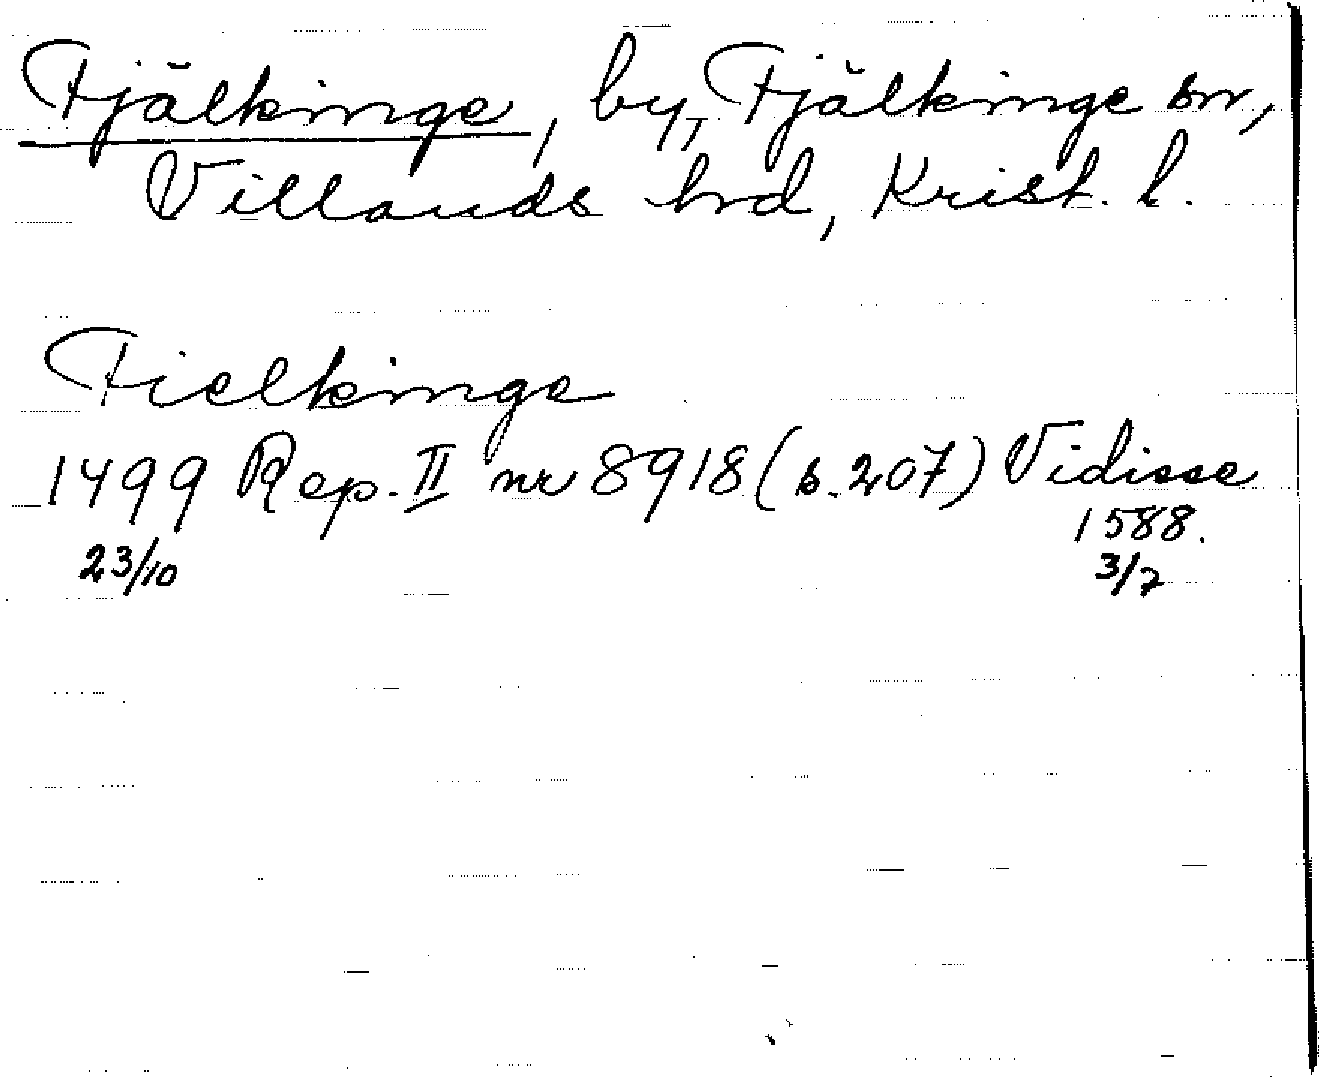 Fjälkinge, by, Fjälkinge sn,
Villands hrd, Krist. l.
Fielkinge
1499 Rep. II nr 8918 (s. 207) Vidisse
1588.
23/10 3/7